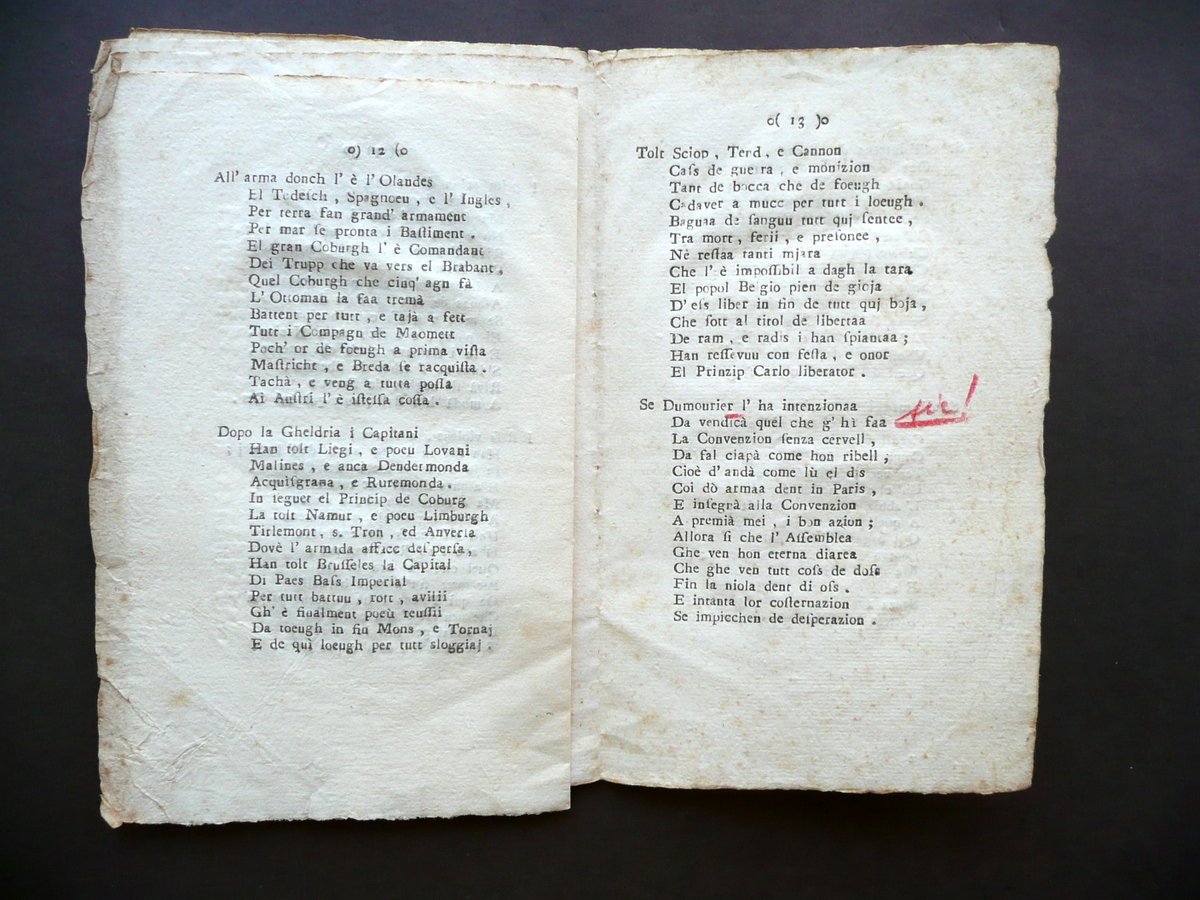 0) 12 (0
All' arma donch l' è l' Olandes
El Todesch, Spagnoeu, e l' Ingles,
Per terra fan grand' armament
Per mar se pronta i Bastiment.
El gran Coburgh l' è Comandant
Dei Trupp che va vers el Brabant,
Quel Coburgh che cinq' agn fà
L' Ottoman la faa tremà
Battent per tutt, e tajà a fett
Tutt i Compagn de Maomett
Poch' or de foeugh a prima vista
Mastricht, e Breda se racquista.
Tachà, e veng a tutta posta
Ai Austri l' è istessa costa.
Dopo la Gheldria i Capitani
Han tolt Liegi, e poeu Lovani
Malines, e anca Dendermonda
Acquisgrana, e Ruremonda.
In seguet el Princip de Coburg
La tolt Namur, e poeu Limburgh
Tirlemont, s. Tron, ed Anversa
Dovè l' armida affice despersa,
Han tolt Brusseles la Capital
Di Paes Bass Imperial
Per tutt battuu, rott, avilii
Gh' è finalment poeù reussii
Da toeugh in fin Mons, e Tornaj
E de quì loeugh per tutt sloggiaj.
0( 13 )0
Tolt Sciop, Tend, e Cannon
Cass de guerra, e monizion
Tant de bocca che de foeugh
Cadaver a mucc per tutt i loeugh.
Bagnaa de sanguu tutt quj sentee,
Tra mort, ferii, e presonee,
Nè restaa tanti mjara
Che l' è impossibil a dagh la tara
El popol Belgio pien de gioja
D' ess liber in fin de tutt quj boja,
Che sott al titol de libertaa
De ram, e radis i han spiantaa;
Han ressevuu con festa, e onor
El Prinzip Carlo liberator.
Se Dumourier l' ha intenzionaa
Da vendicà quel che g' hì faa
sic!
La Convenzion senza cervell,
Da fal ciapà come hon ribell;
Cioè d' andà come lù el dis
Coi dò armaa dent in Paris,
E insegnà alla Convenzion
A premià mei, i bon azion;
Allora sì che l' Assemblea
Ghe ven hon eterna diarea
Che ghe ven tutt coss de doss
Fin la niola dent di oss.
E intanta lor costernazion
Se impicchen de desperazion.